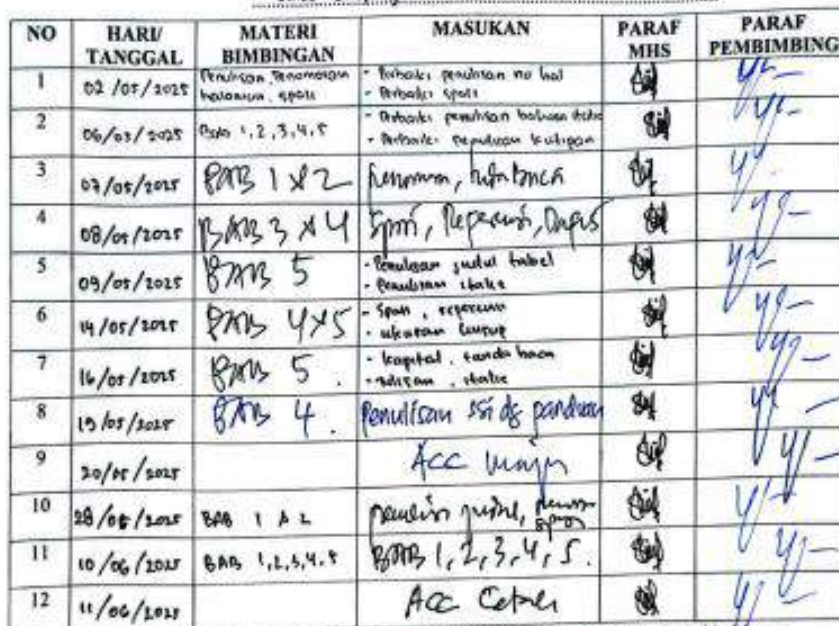 NO HARI/ TANGGAL MATERI BIMBINGAN MASUKAN PARAF MHS PARAF PEMBIMBING
1 02/05/2025 Penulisan, Penomoran halaman, spasi - Perbaiki penulisan no hal
- Perbaiki spasi
2 06/05/2025 Bab 1,2,3,4,5 - Perbaiki penulisan bahasa
- Perbaiki penulisan kutipan
3 07/05/2025 BAB 1 & 2
4 08/05/2025 BAB 3 & 4 Spasi, Referensi,
5 09/05/2025 BAB 5 - Penulisan judul tabel
- Penulisan italic
6 14/05/2025 BAB 4 & 5 - Spasi, referensi
- ukuran
7 16/05/2025 BAB 5. - kapital, tanda baca
italic
8 19/05/2025 BAB 4. Penulisan ssi dg panduan
9 20/05/2025 ACC
10 28/05/2025 BAB 1 & 2
11 10/06/2025 BAB 1,2,3,4,5 BAB 1,2,3,4,5.
12 11/06/2025 ACC Cetak